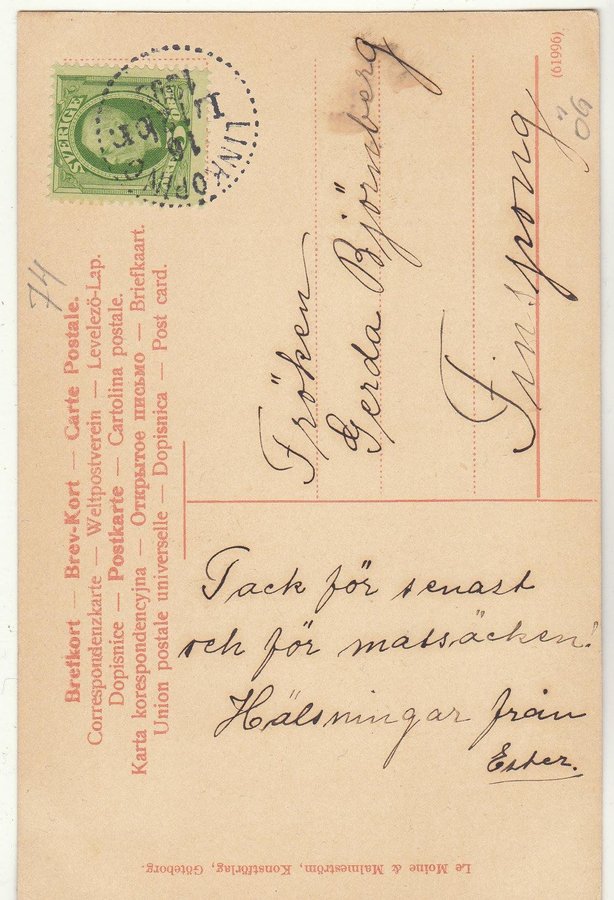 Brefkort — Brev-Kort — Carte Postale.
Correspondenzkarte — Weltpostverein — Levelező-Lap.
Dopisnice — Postkarte — Cartolina postale.
Karta korespondencyjna — Открытое письмо — Briefkaart.
Union postale universelle — Dopisnica — Post card.
74
SVERIGE
LINKÖPING
(61996)
Fröken
Gerda Björnberg
Finspong
Tack för senast
och för matsäcken!
Hälsningar från
Ester.
Le Moine & Malmeström, Konstförlag, Göteborg.